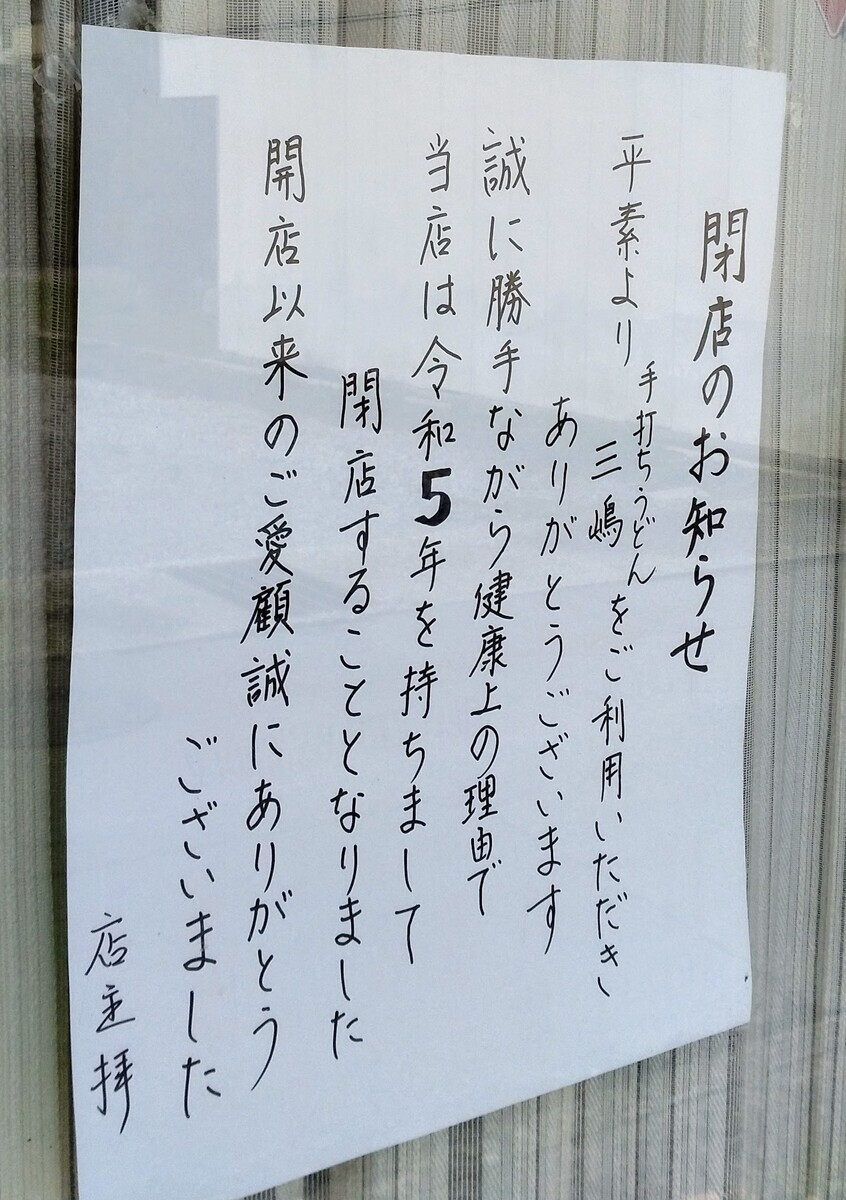 閉店のお知らせ
平素より手打ちうどん三嶋をご利用いただき
ありがとうございます
誠に勝手ながら健康上の理由で
当店は令和5年を持ちまして
閉店することとなりました
開店以来のご愛顧誠にありがとう
ございました
店主拝